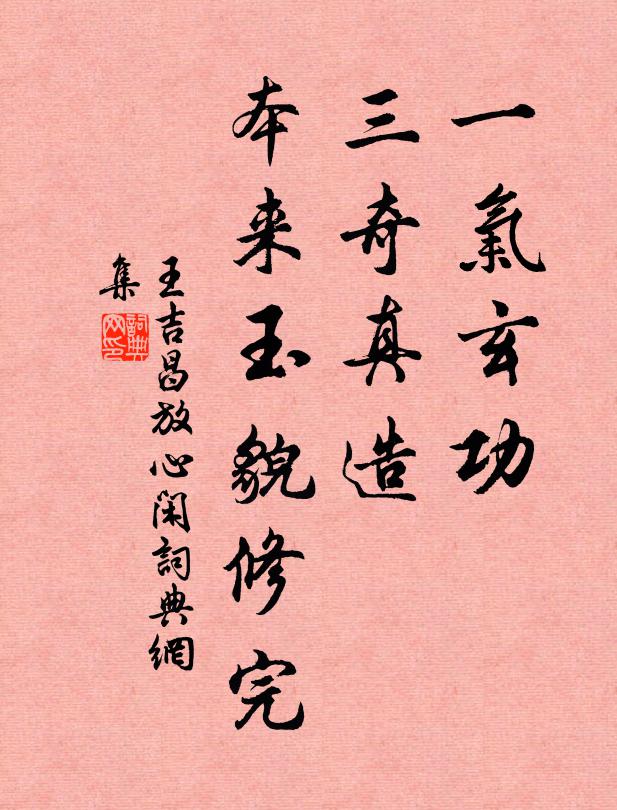 一氣玄功
三奇真造
本来玉貌修完
王吉昌放心閑詞典網
集
詞典
网印